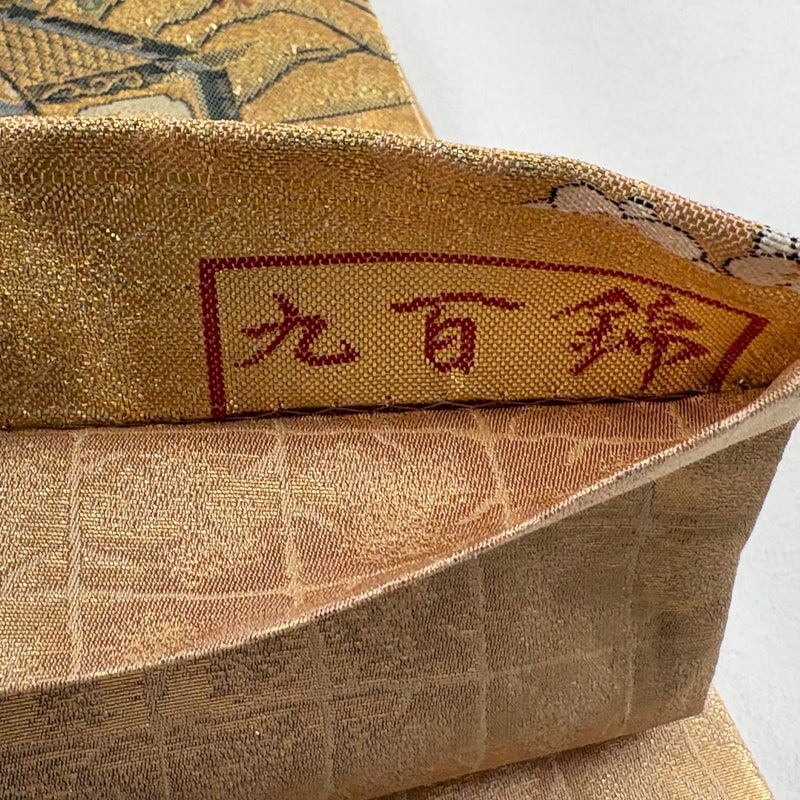 九百錦